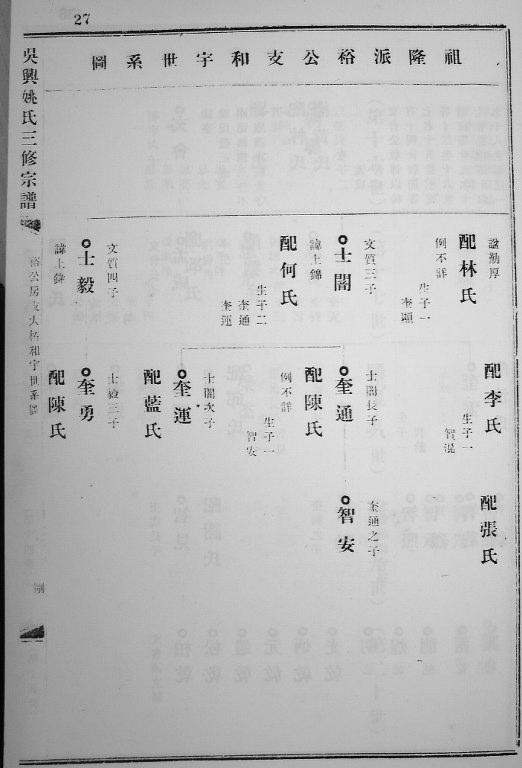 27
祖隆派裕公支和宇世系圖
諡勤厚
配林氏
例不詳
生子一
奎顯
文質三子
士闇
諱士錦
配何氏
生子二
奎通
奎運
文質四子
士毅
配李氏
生子一
智混
士闇長子
奎通
配陳氏
例不詳
生子一
智安
士闇次子
奎運
配藍氏
士毅三子
奎勇
配陳氏
配張氏
奎通之子
智安
吳興姚氏三修宗譜